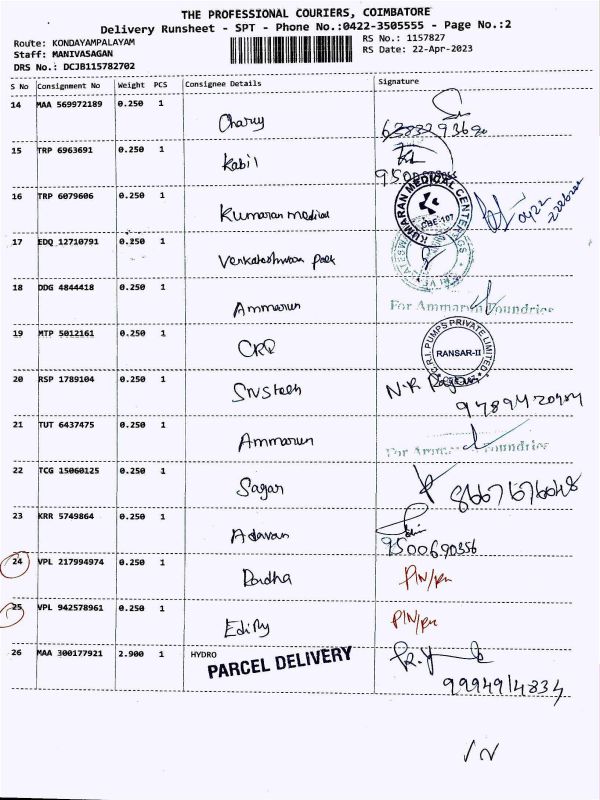 THE PROFESSIONAL COURIERS, COIMBATORE
Delivery Runsheet - SPT - Phone No.:0422-3505555 - Page No.:2
Route: KONDAYAMPALAYAM
RS No.: 1157827
Staff: MANIVASAGAN
RS Date: 22-Apr-2023
DRS No.: DCJB115782702
S No Consignment No Weight PCS Consignee Details Signature
14 MAA 569972189 0.250 1
15 TRP 6963691 0.250 1 Kabil
16 TRP 6079606 0.250 1 Kumaran medical
KUMARAN MEDICAL CENTER
CBE-107
0422
17 EDQ 12710791 0.250 1
18 DDG 4844418 0.250 1 Ammarun For Ammarun Foundries
19 MTP 5012161 0.250 1 CRP
C.R.I. PUMPS PRIVATE LIMITED
RANSAR-II
20 RSP 1789104 0.250 1
21 TUT 6437475 0.250 1 Ammarun For Ammarun Foundries
22 TCG 15060125 0.250 1 Sagar
23 KRR 5749864 0.250 1 Adavan
9500690356
24 VPL 217994974 0.250 1
25 VPL 942578961 0.250 1
26 MAA 300177921 2.900 1 HYDRO
PARCEL DELIVERY
9994914834